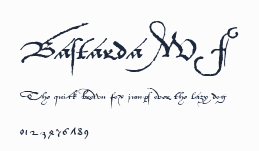 Bastarda W f
The quick brown fox jumps over the lazy dog
0123456789